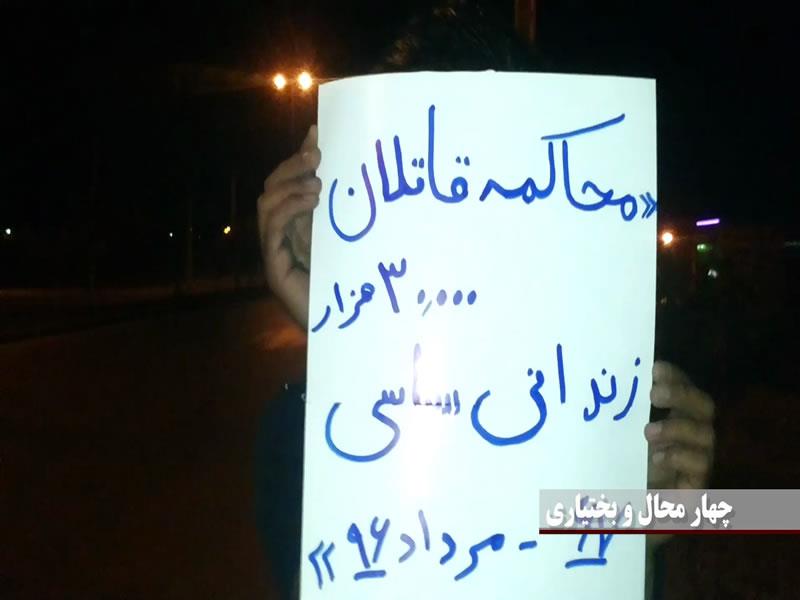 «محاکمه قاتلان
۳۰,۰۰۰ هزار
زندانی سیاسی
۶۷ - مرداد ۹۶»
چهار محال و بختیاری